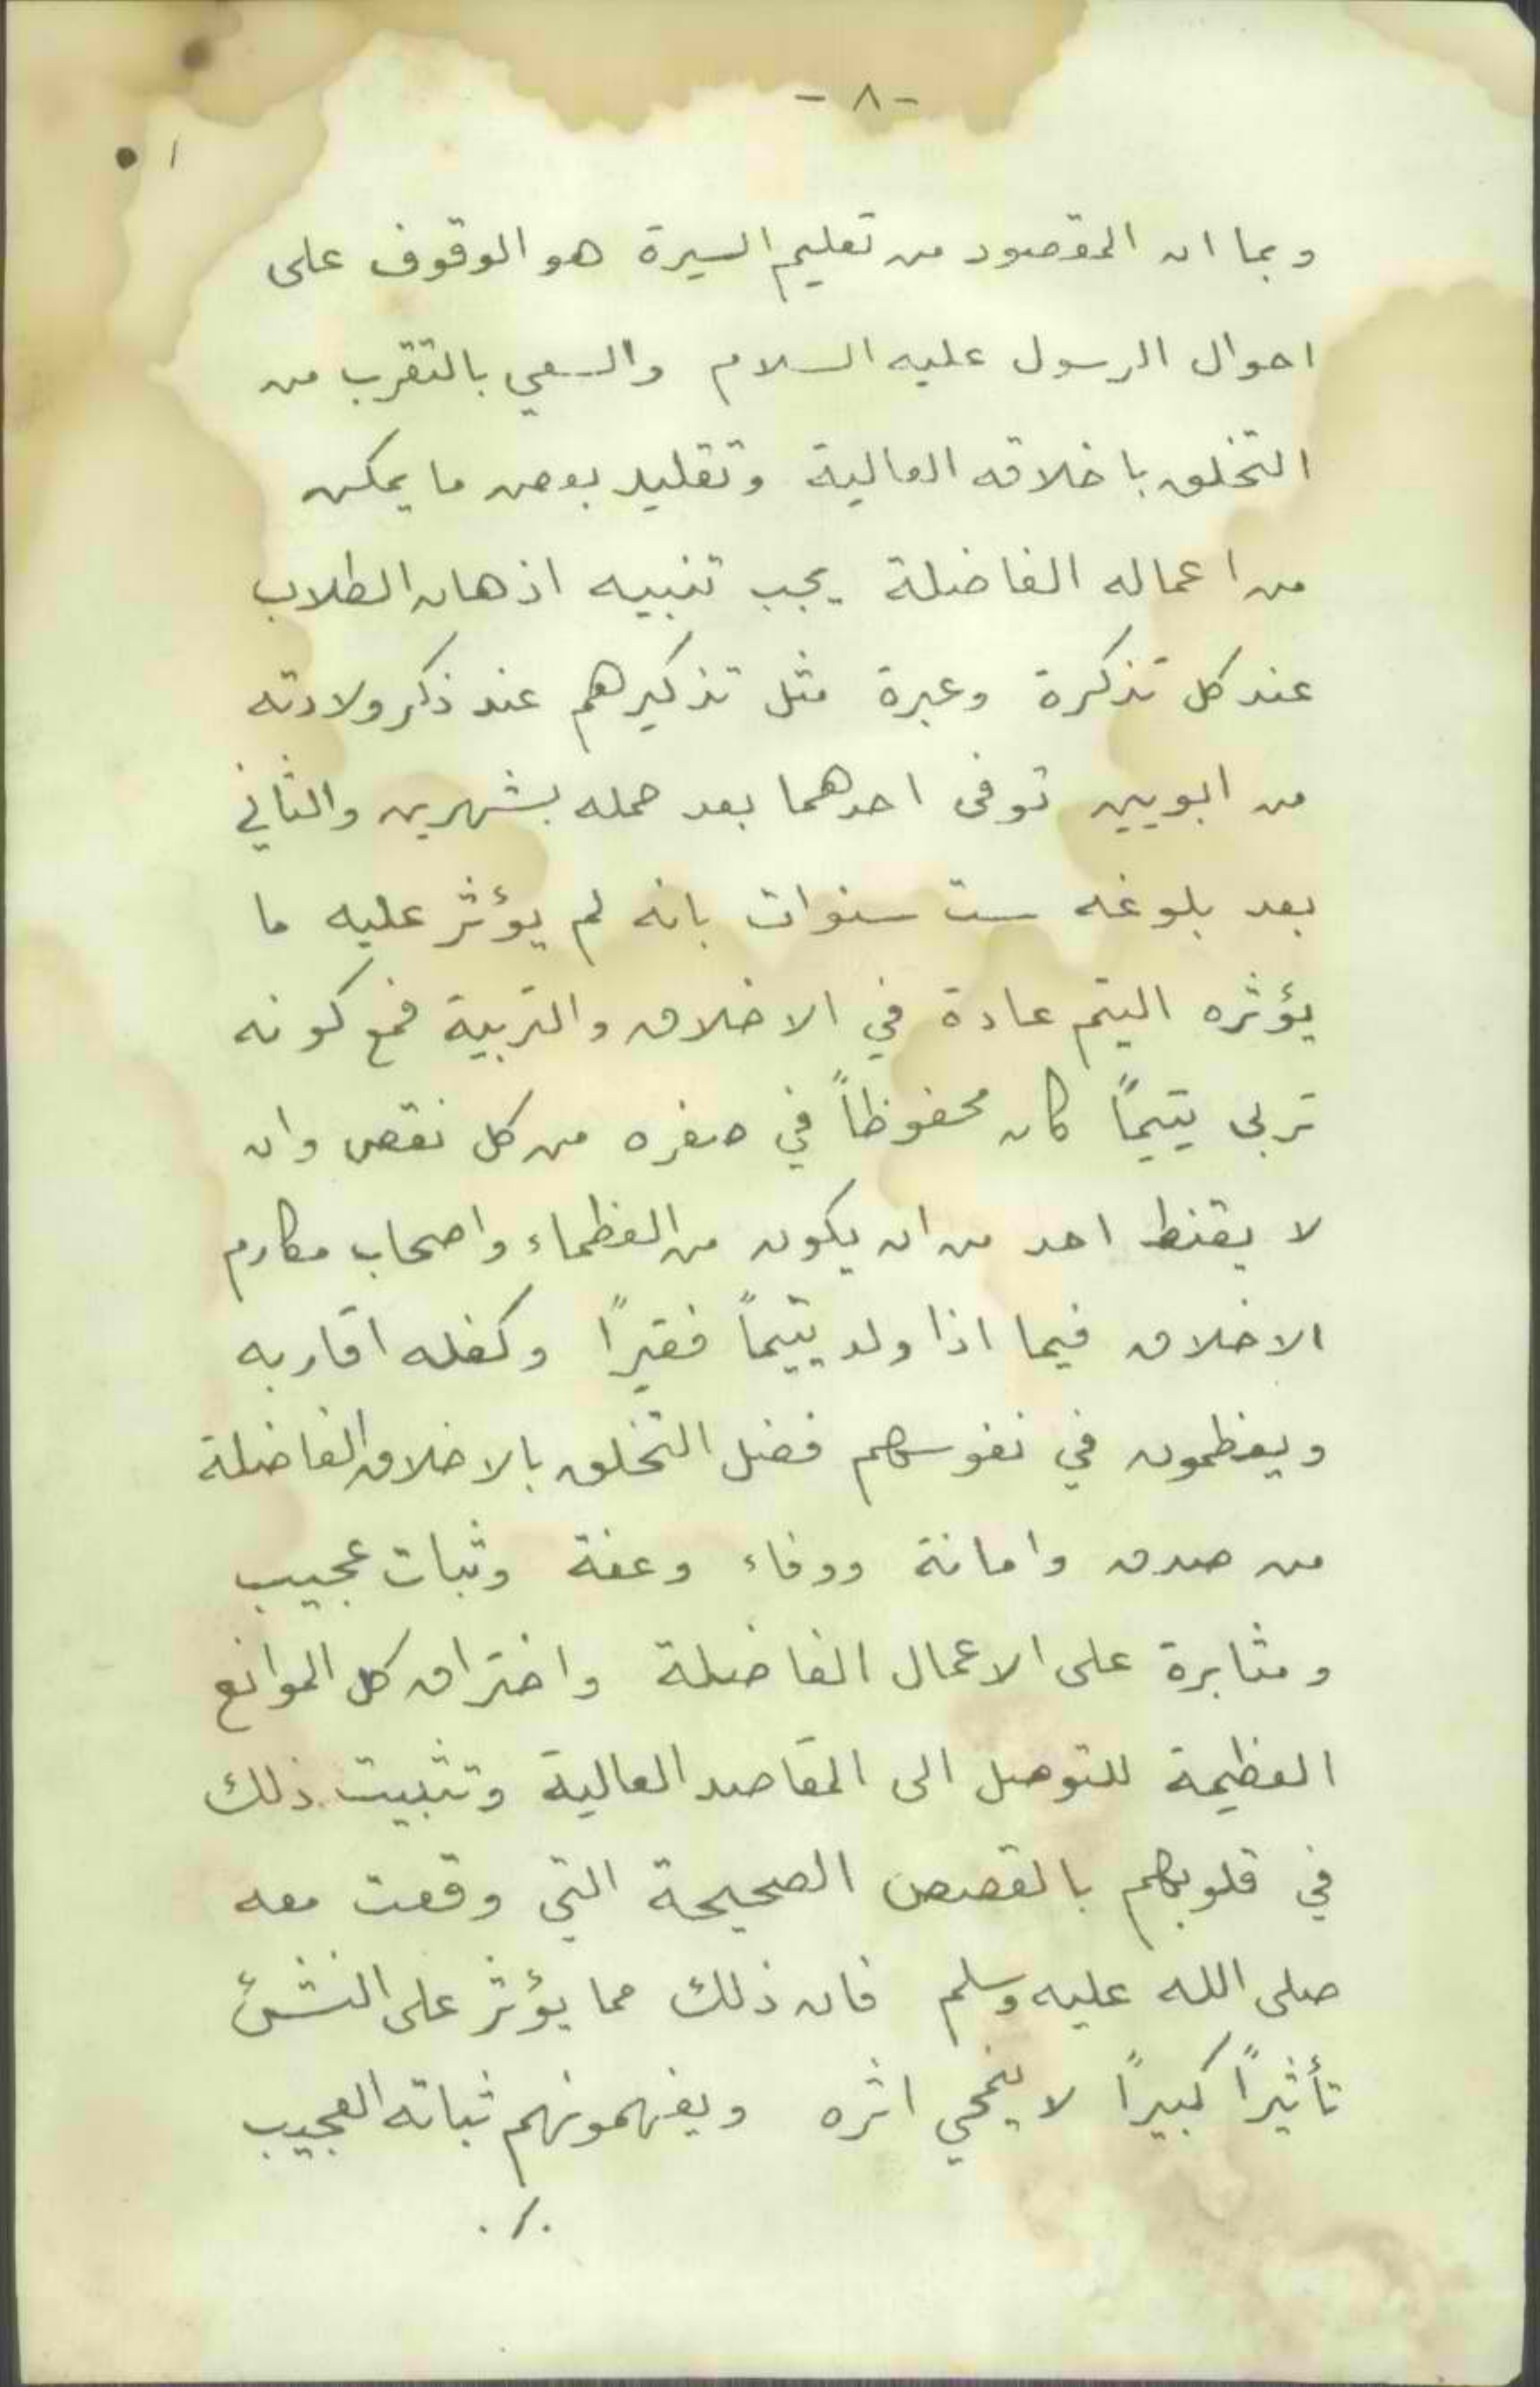 - ٨ -
١٠
وبما ان المقصود من تعليم السيرة هو الوقوف على
احوال الرسول عليه السلام والسعي بالتقرب من
التخلق باخلاقه العالية وتقليد بعض ما يمكن
من اعماله الفاضلة يجب تنبيه اذهان الطلاب
عند كل تذكرة وعبرة مثل تذكيرهم عند ذكر ولادته
من ابويين توفى احدهما بعد حمله بشهرين والثاني
بعد بلوغه ست سنوات بانه لم يؤثر عليه ما
يؤثره اليتم عادة في الاخلاق والتربية فمع كونه
تربى يتيماً كان محفوظاً في صغره من كل نقص وان
لا يقنط احد من ان يكون من العظماء واصحاب مكارم
الاخلاق فيما اذا ولد يتيماً فقيراً وكفله اقاربه
ويعظمون في نفوسهم فضل التخلق بالاخلاق الفاضلة
من صدق وامانة ووفاء وعفة وثبات عجيب
ومثابرة على الاعمال الفاضلة واختراق كل الموانع
العظيمة للتوصل الى المقاصد العالية وتثبيت ذلك
في قلوبهم بالقصص الصحيحة التي وقعت معه
صلى الله عليه وسلم فان ذلك مما يؤثر على النشئ
تأثيراً كبيراً لا ينمحي اثره ويفهمونهم ثباته العجيب
./.